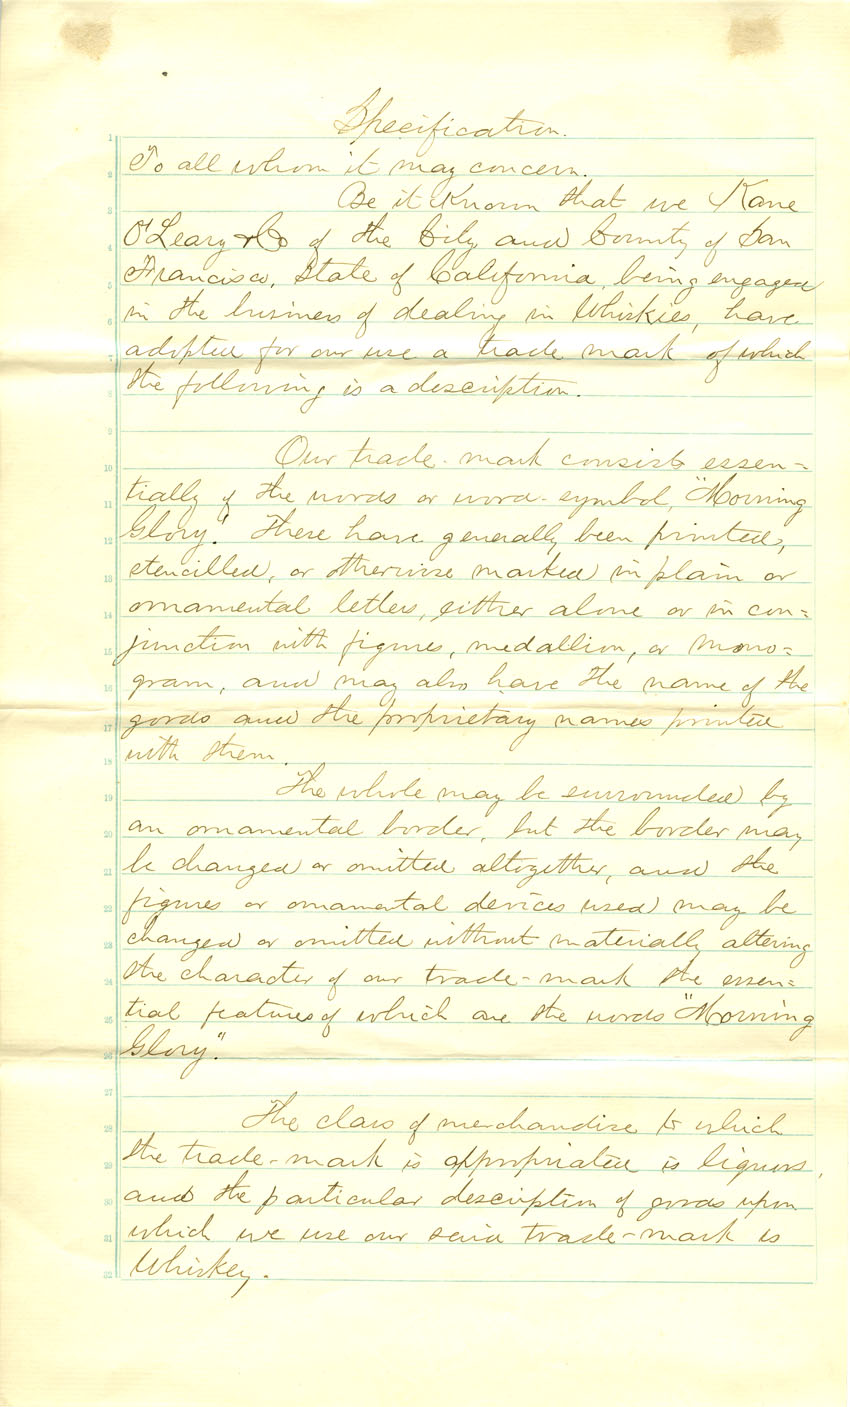 Specification.
To all whom it may concern.
Be it Known that we Kane
O'Leary & Co of the City and County of San
Francisco, State of California, being engaged
in the business of dealing in Whiskies, have
adopted for our use a trade mark of which
the following is a description.
Our trade-mark consists essen=
tially of the words or word-symbol, "Morning
Glory." These have generally been printed,
stencilled, or otherwise marked in plain or
ornamental letters, either alone or in con=
junction with figures, medallion, or mono=
gram, and may also have the name of the
goods and the proprietary names printed
with them.
The whole may be surrounded by
an ornamental border, but the border may
be changed or omitted altogether, and the
figures or ornamental devices used may be
changed or omitted without materially altering
the character of our trade-mark the essen=
tial features of which are the words "Morning
Glory".
The class of merchandise to which
the trade-mark is appropriated is liquors,
and the particular description of goods upon
which we use our said trade-mark is
Whiskey.